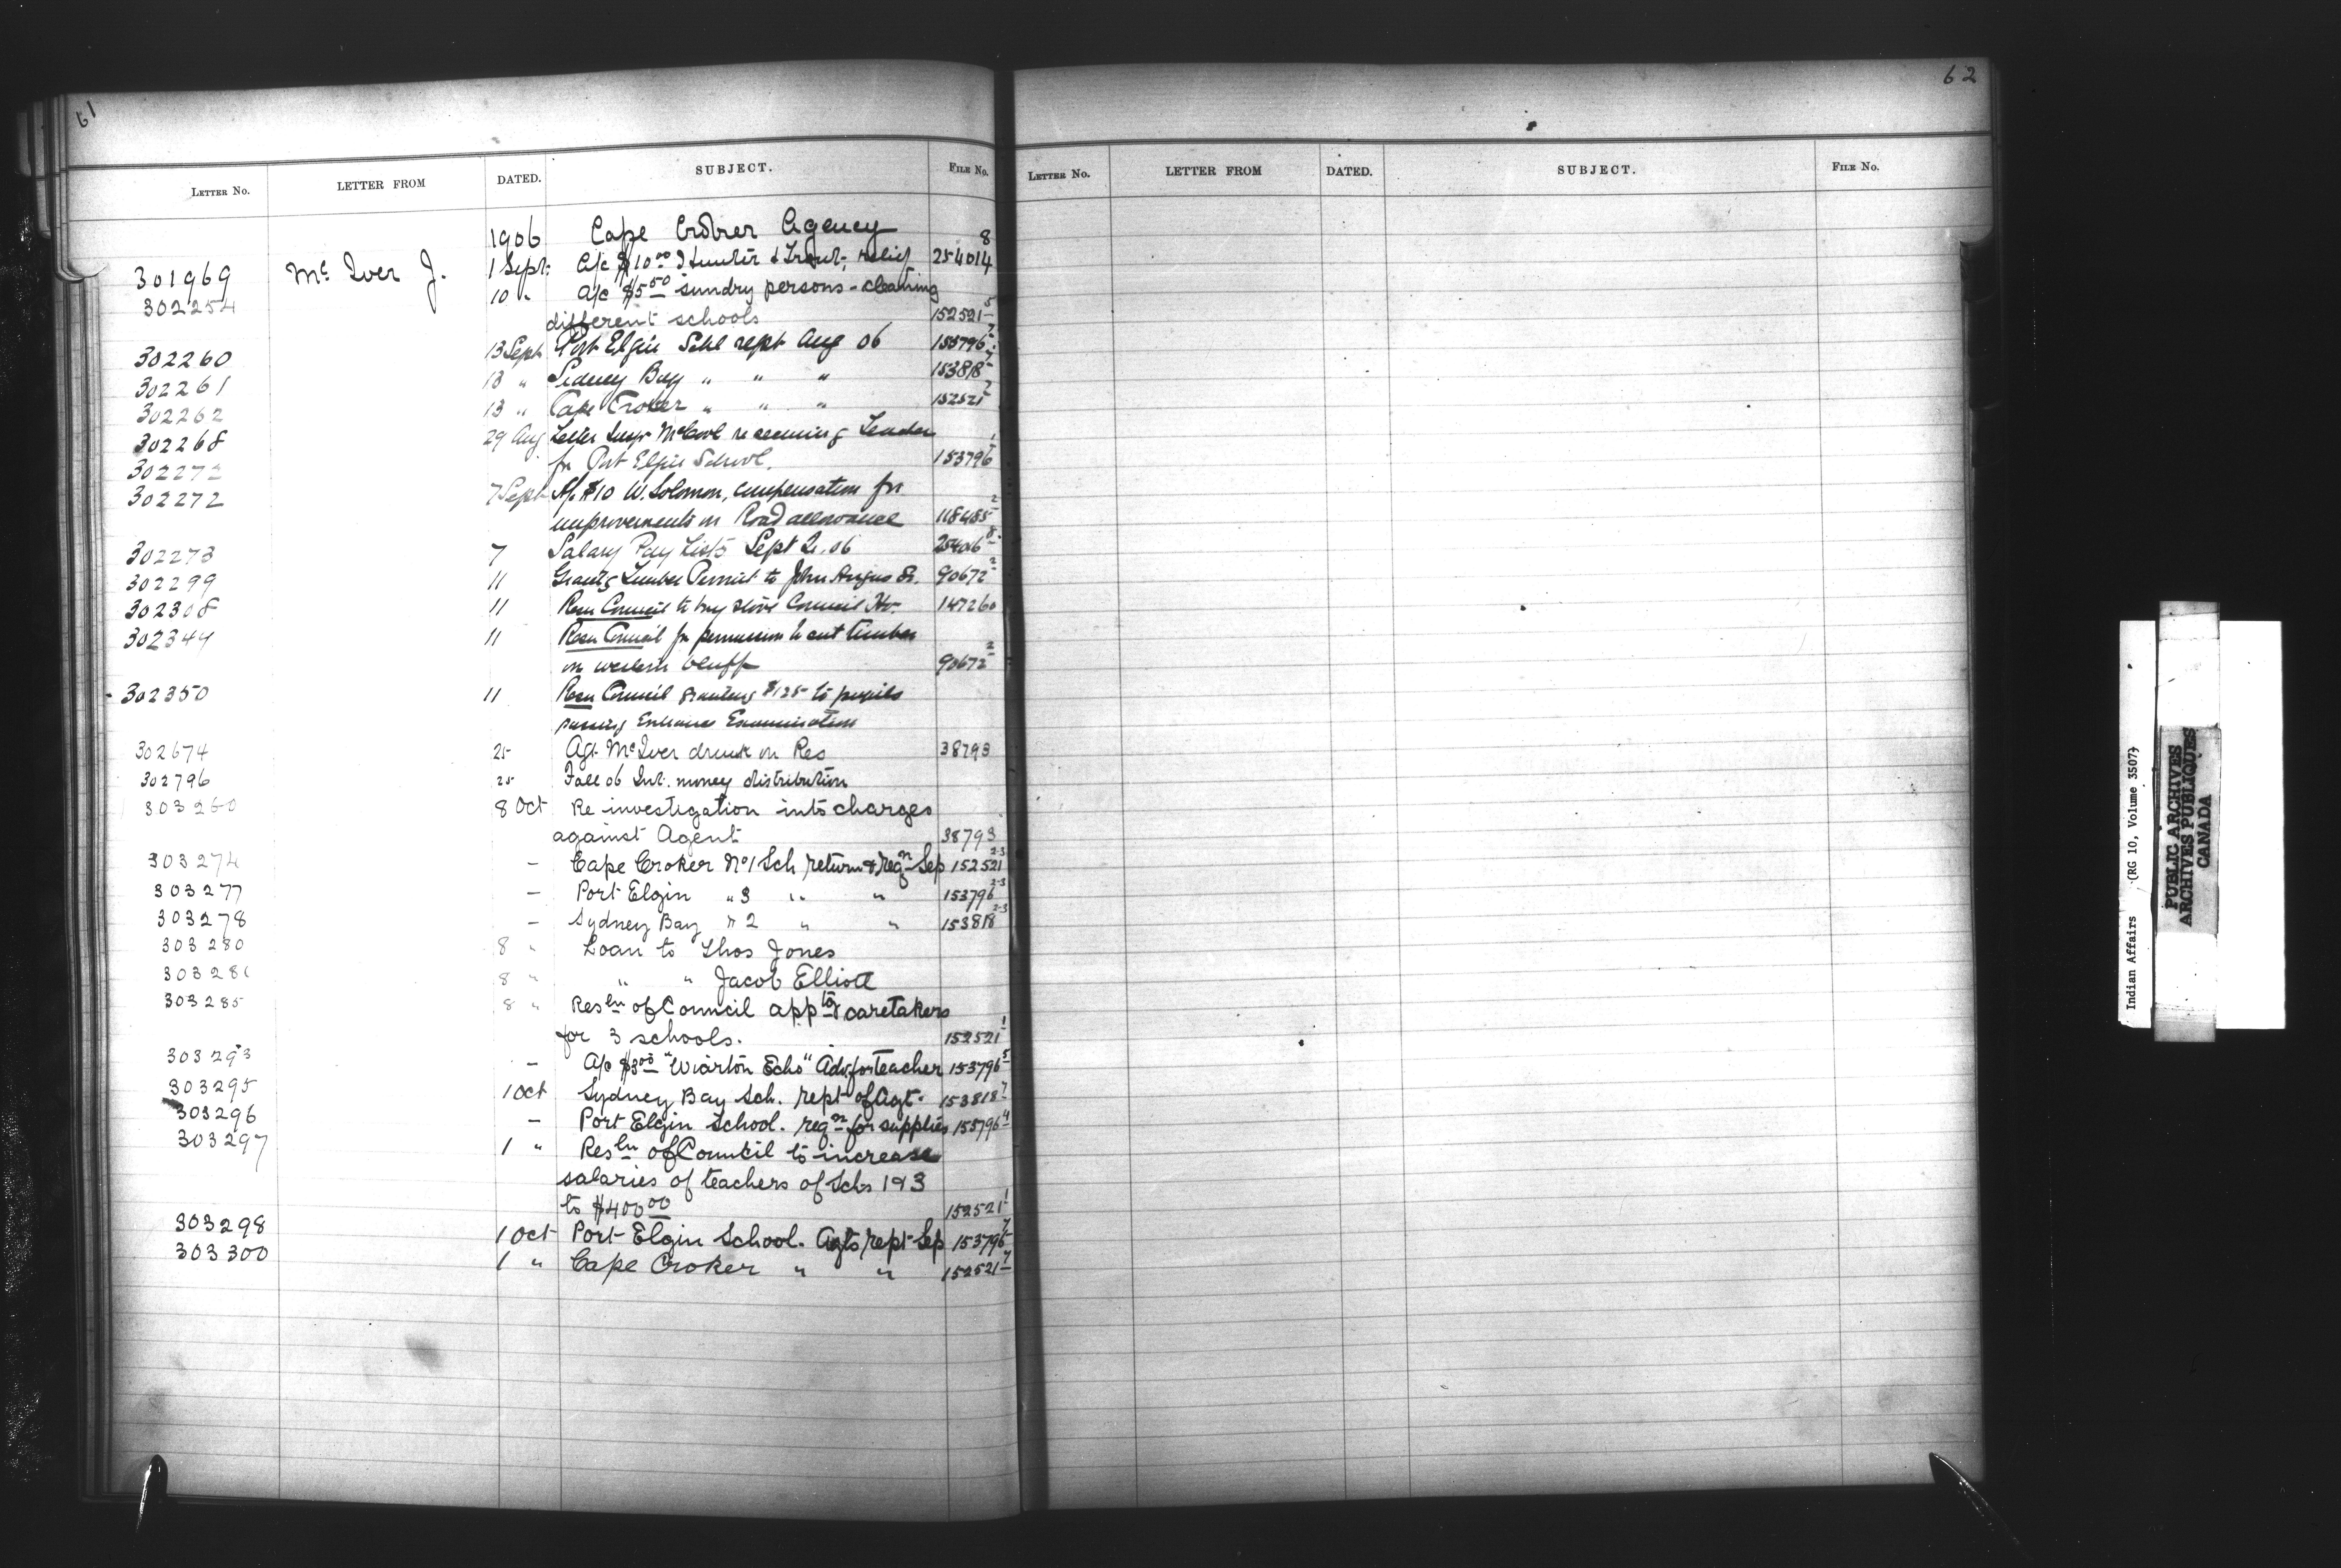 61
LETTER No. LETTER FROM DATED. SUBJECT. FILE No.
1906 Cape Croker Agency
301969 Mc Iver J. 1 Sept. A/c $10.00 Hunter & Trout, relief 254014 8
302254 10 " A/c $5.50 sundry persons - cleaning
different schools 152521 5
302260 13 Sept Port Elgin Schl rept Aug 06 153796 7
302261 13 " Sidney Bay " " " 153818 7
302262 13 " Cape Croker " " " 152521 7
302268 29 Aug Letter Inspr McCool re securing Teacher
302272 for Port Elgin School. 153796 1
302272 7 Sept A/c $10 W. Solomon, compensation for
improvements on Road allowance 118485 2
302273 7 Salary Pay Lists Sept Qr. 06 25406 8
302299 11 Grants Timber Permit to John Angus Sr. 90672 2
302308 11 Resn Council to buy stove Council Ho. 147260
302344 11 Resn Council for permission to cut timber
on western bluff 90672 2
302350 11 Resn Council granting $125 to pupils
passing Entrance Examination
302674 25 Agt. McIver drunk on Res 38793
302796 25 Fall 06 Int. money distribution
303260 8 Oct Re investigation into charges
against Agent 38793
303274 - Cape Croker No 1 Sch return & reqn Sep 152521 2-3
303277 - Port Elgin " 3 " " 153796 2-3
303278 - Sydney Bay " 2 " " 153818 2-3
303280 8 " Loan to Thos Jones
303281 8 " " " Jacob Elliott
303285 8 " Resln of Council apptg caretakers
for 3 schools. 152521 1
303293 - A/c $3.00 "Wiarton Echo" Adv. for teacher 153796 5
303295 1 Oct Sydney Bay Sch. rept of Agt. 153818 7
303296 - Port Elgin School. reqn for supplies 153796 4
303297 1 " Resln of Council to increase
salaries of teachers of Schs 1 & 3
to $400.00 152521 1
303298 1 Oct Port Elgin School. Agts rept Sep 153796 7
303300 1 " Cape Croker " " 152521 7
62
LETTER No. LETTER FROM DATED. SUBJECT. FILE No.
Indian Affairs (RG 10, Volume 3507)
PUBLIC ARCHIVES
ARCHIVES PUBLIQUES
CANADA